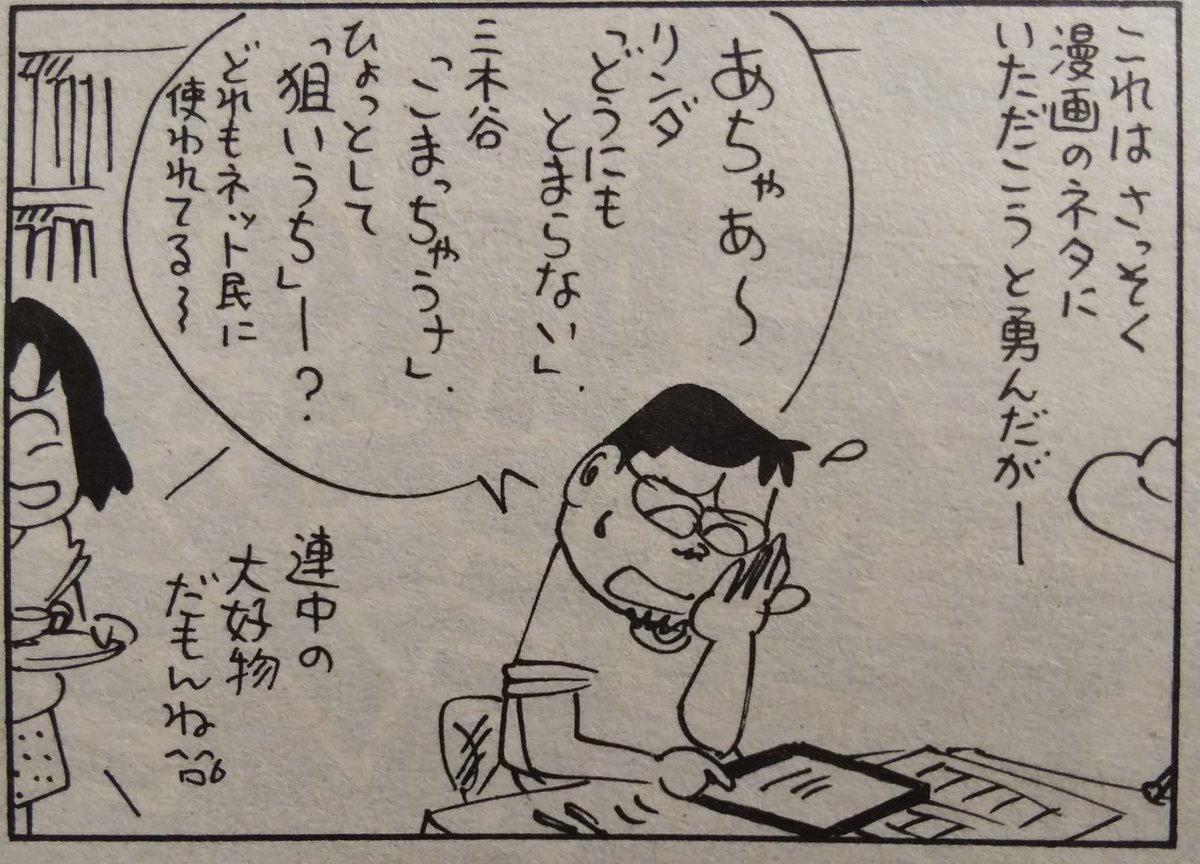 これは さっそく
漫画のネタに
いただこうと勇んだがー
あちゃあ〜
リンダ
「どうにも
とまらない」.
三木谷
「こまっちゃうナ」.
ひょっとして
「狙いうち」ー?
どれもネット民に
使われてる〜
連中の
大好物
だもんね